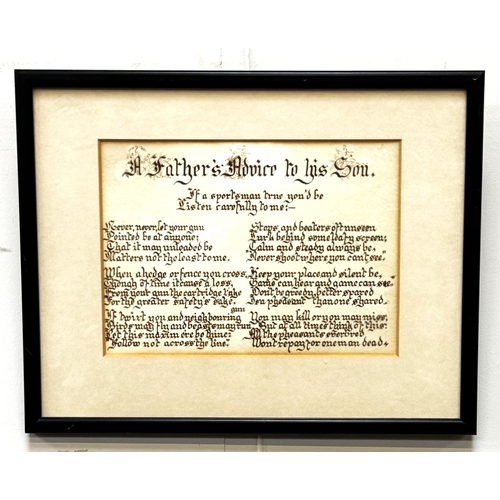 A Father's Advice to his Son.
If a sportsman true you'd be
Listen carefully to me:-
Never, never, let your gun
Pointed be at anyone;
That it may unloaded be
Matters not the least to me.
When a hedge or fence you cross,
Though of time it cause a loss,
From your gun the cartridge take
For the greater safety's sake.
If twixt you and neighboring gun
Birds may fly and beasts may run
Let this maxim ere be thine:
Follow not across the line.
Stops and beaters oft unseen
Lurk behind some leafy screen;
Calm and steady always be,
Never shoot where you can't see.
Keep your place and silent be,
Game can hear and game can see.
Don't be greedy, better spared
Is a pheasant than one shared.
You may kill or you may miss,
But at all times think of this:
All the pheasants ever bred
Wont repay for one man dead.